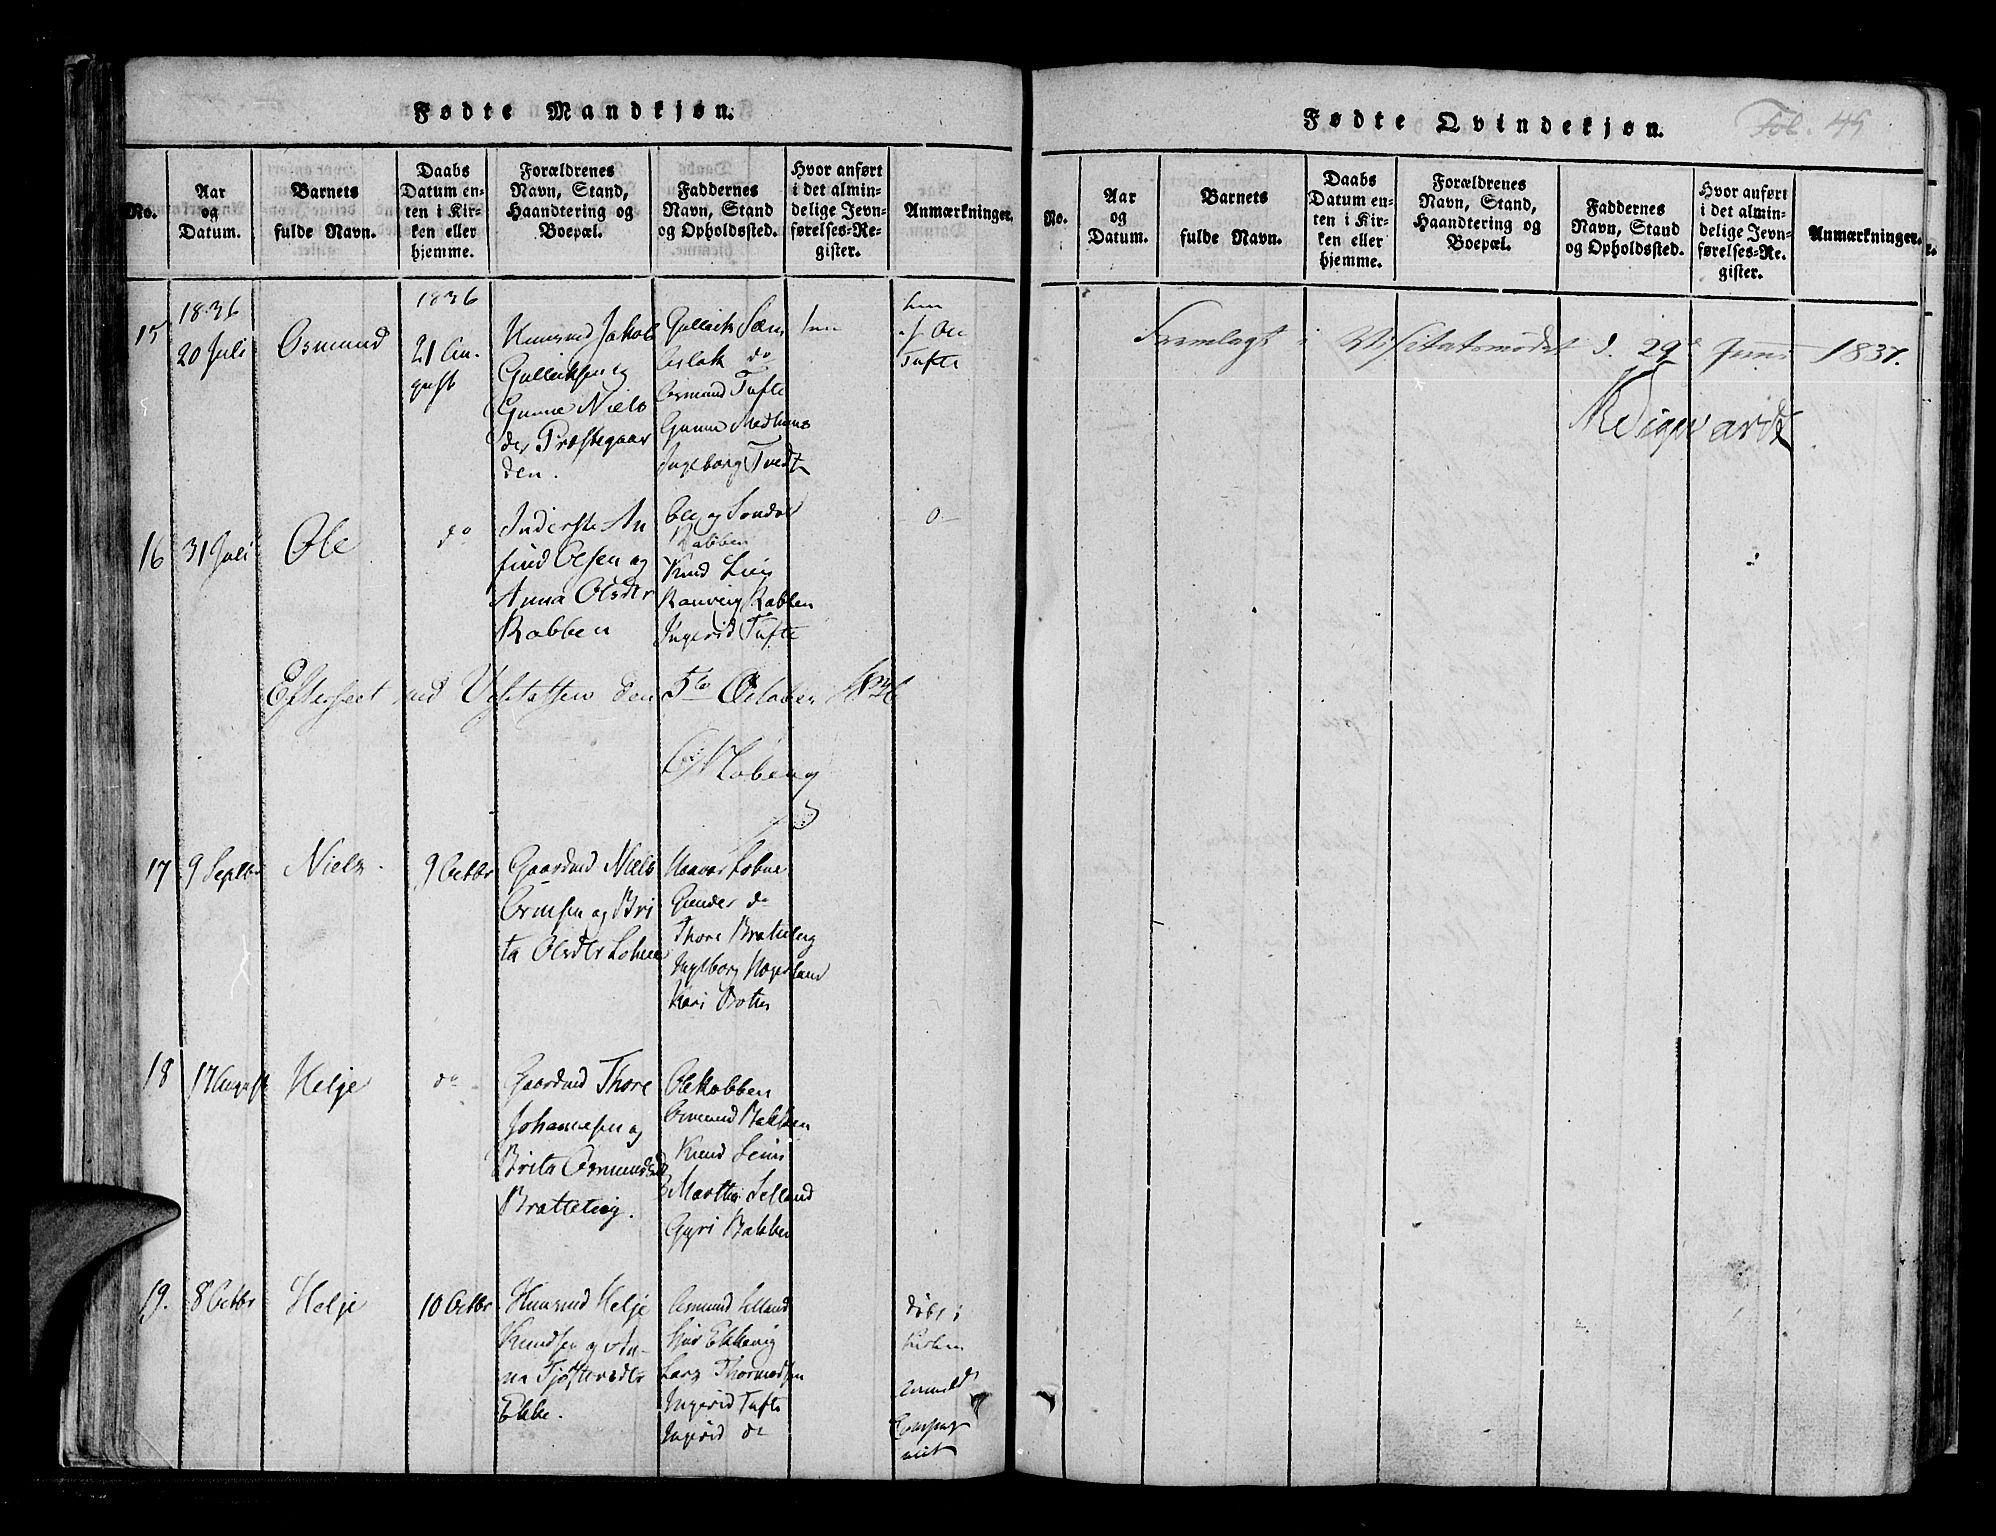 Fødte Mandkjøn.
No.
Aar
og
Datum.
Barnets
fulde Navn.
Daabs
Datum en-
ten i Kir-
ken eller
hjemme.
Forældrenes
Navn, Stand,
Haandtering og
Boepæl.
Faddernes
Navn, Stand
og Opholdssted.
Hvor anført
i det almin-
delige Jevn-
førelses-Re-
gister.
Anmærkninger.
15
1836
20 Juli
Osmund
1836
21 Au-
gust
Huusmd Jakob
Gulliksen og
Gunne Niels
der Præstegaar
den.
Gullik
Aslak do
Osmund Tufte
Gunne
Ingeborg Tvedt
Tufte
16
31 Juli
Ole
do
Inderste An
find Olsen og
Anna Olsdtr
Rabben
Ole og
Rabben
Knud
Ranveig Rabben
Ingerid Tufte
o
Efterseet ved Visitatsen den 5te October 1836
17
9 Septbr
Niels
9 Octbr
Gaardmd Niels
Ormsen og Bri
ta Olsdtr
Gunder do
Thore Bratteteig
Ingeborg
Kari
18
17 August
Helje
do
Gaardmd Thore
Johannesen og
Brita Osmundsd
Bratteteig.
Ole Rabben
Osmund Rabben
Knud
Martha Lelland
Gyri Rabben
19.
8 Octbr
Helje
10 Octbr
Huusmd Helje
Knudsen og An-
na Tjøstelsdtr
Ekke.
Osmund Lelland
Lars Thormodsen
Ingerid Tufte
Ingerid do
døbt i
Kirken
Fødte Qvindekjøn.
Fol. 45
No.
Aar
og
Datum.
Barnets
fulde Navn.
Daabs
Datum en-
ten i Kir-
ken eller
hjemme.
Forældrenes
Navn, Stand,
Haandtering og
Boepæl.
Faddernes
Navn, Stand
og Opholdssted.
Hvor anført
i det almin-
delige Jevn-
førelses-Re-
gister.
Anmærkninger.
Fremlagt i Visitatsmødet d. 29de Juni 1837.